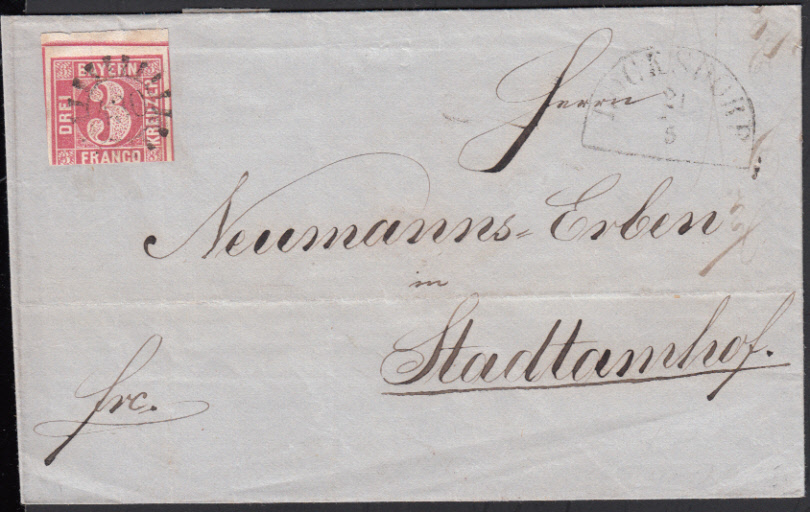 BAYERN
DREI
3
KREUZER
FRANCO
21
5
Herrn
Neumanns-Erben
in
Stadtamhof.
frc.